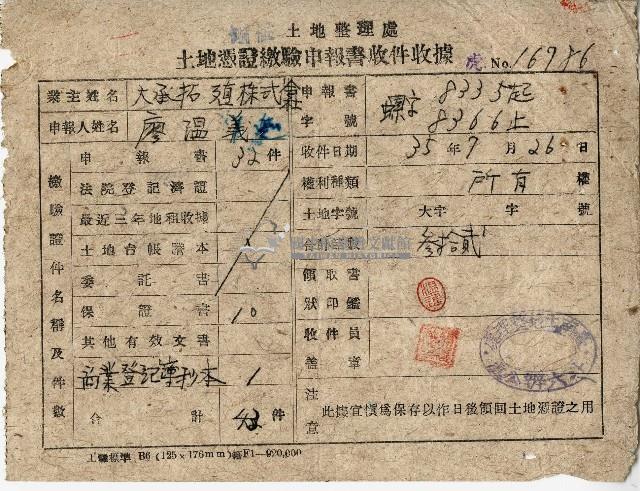 土地整理處
土地憑證繳驗申報書收件收據
虎 No. 16786
業主姓名 大承拓殖株式會社
申報人姓名 廖溫義
申報書字號 螺字 8335起 8366止
收件日期 35年7月26日
權利種類 所有權
土地字號 大字 字 號
合計 叁拾貳
領取書狀印鑑
收件員蓋章
注意 此據宜慎為保存以作日後領回土地憑證之用
繳驗證件名稱及件數
申報書 32件
法院登記濟證
最近三年地租收據
土地台帳謄本
委託書
保證書 10
其他有效文書
商業登記簿抄本 1
合計 43件
工礦標準 B6 (125×176mm) 紙F1—920,000
國史館臺灣文獻館
TAIWAN HISTORICA